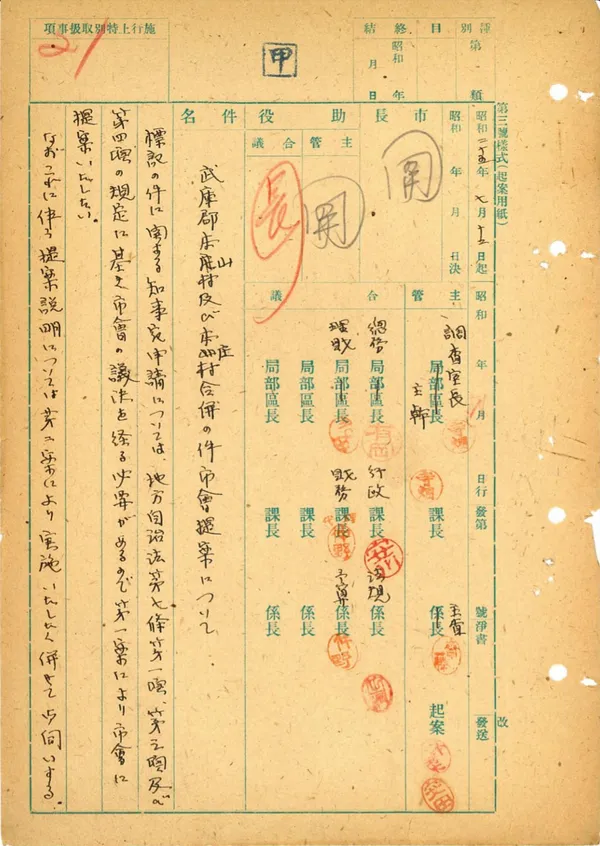 第三號樣式(起案用紙)
施行上特別取扱事項
21
甲
類別 第 類
目
終結 昭和 年 月 日
昭和二十五年七月十三日起
昭和 年 月 日決
昭和 年 月 日行
發第 號
淨書
發送
改
市長
助役
主管
合議
長
件名
主管
調査室長
主幹
局部區長
課長
主査
係長
起案
合議
總務
局部區長
行政
課長
法規
係長
理財
局部區長
財務
課長
予算
係長
局部區長
課長
係長
局部區長
課長
係長
武庫郡本山村及び本庄村合併の件市會提案について
標記の件に関する知事宛申請については、地方自治法第七條第一項、第三項及び
第四項の規定に基き市會の議決を経る必要があるので第一案により市會に
提案いたしたい。
なおこれに伴う提案説明については第二案により実施いたしたく併せてお伺いする。